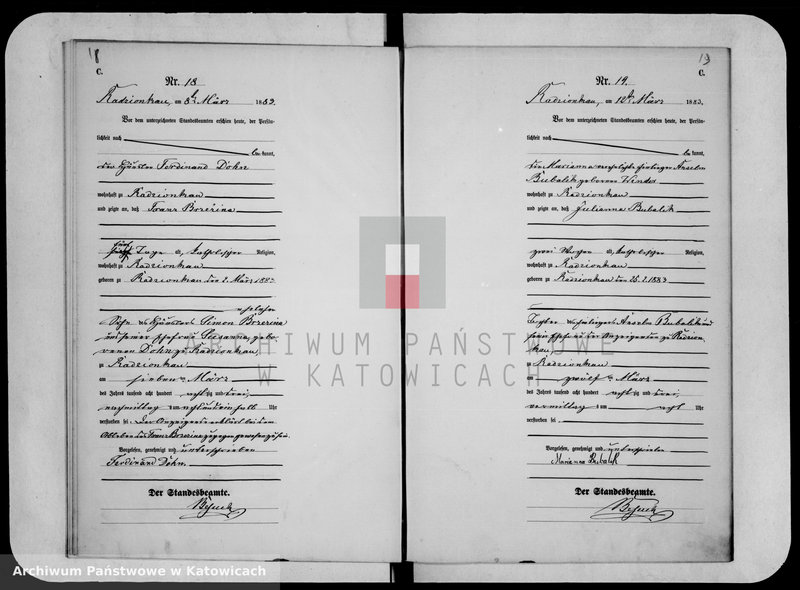 18
C.
Nr. 18
Radzionkau, am 8t März 1883.
Vor dem unterzeichneten Standesbeamten erschien heute, der Persön-
lichkeit nach
bekannt,
der Häusler Ferdinand Dohn
wohnhaft zu Radzionkau
und zeigte an, daß Franz Brzezina
fünf Tage alt, katholischer Religion,
wohnhaft zu Radzionkau
geboren zu Radzionkau den 2. März 1883
ehelicher
Sohn des Häuslers Simon Brzezina
und seiner Ehefrau Susanna, gebo-
renen Dohn zu Radzionkau,
zu Radzionkau
am sieben März
des Jahres tausend acht hundert achtzig und drei,
nachmittag um Uhr
verstorben sei. Der Anzeigende erklärt bei dem
Ableben des Franz Brzezina zugegen gewesen zu sein.
Vorgelesen, genehmigt und unterschrieben
Ferdinand Dohn.
Der Standesbeamte.
19
C.
Nr. 19.
Radzionkau, am 12t März 1883.
Vor dem unterzeichneten Standesbeamten erschien heute, der Persön-
lichkeit nach
bekannt,
die Marianna verehelichte Anselm
Bubalik geborene
wohnhaft zu Radzionkau
und zeigte an, daß Julianna Bubalik
zwei Wochen alt, katholischer Religion,
wohnhaft zu Radzionkau
geboren zu Radzionkau den 25. 2. 1883
Tochter des Anselm Bubalik und
seiner Ehefrau der Anzeigenden zu Radzion-
kau,
zu Radzionkau
am zwölf März
des Jahres tausend acht hundert achtzig und drei,
vormittag um acht Uhr
verstorben sei
Vorgelesen, genehmigt und unterschrieben
Marianna Bubalik
Der Standesbeamte.
ARCHIWUM PAŃSTWOWE
W KATOWICACH
Archiwum Państwowe w Katowicach